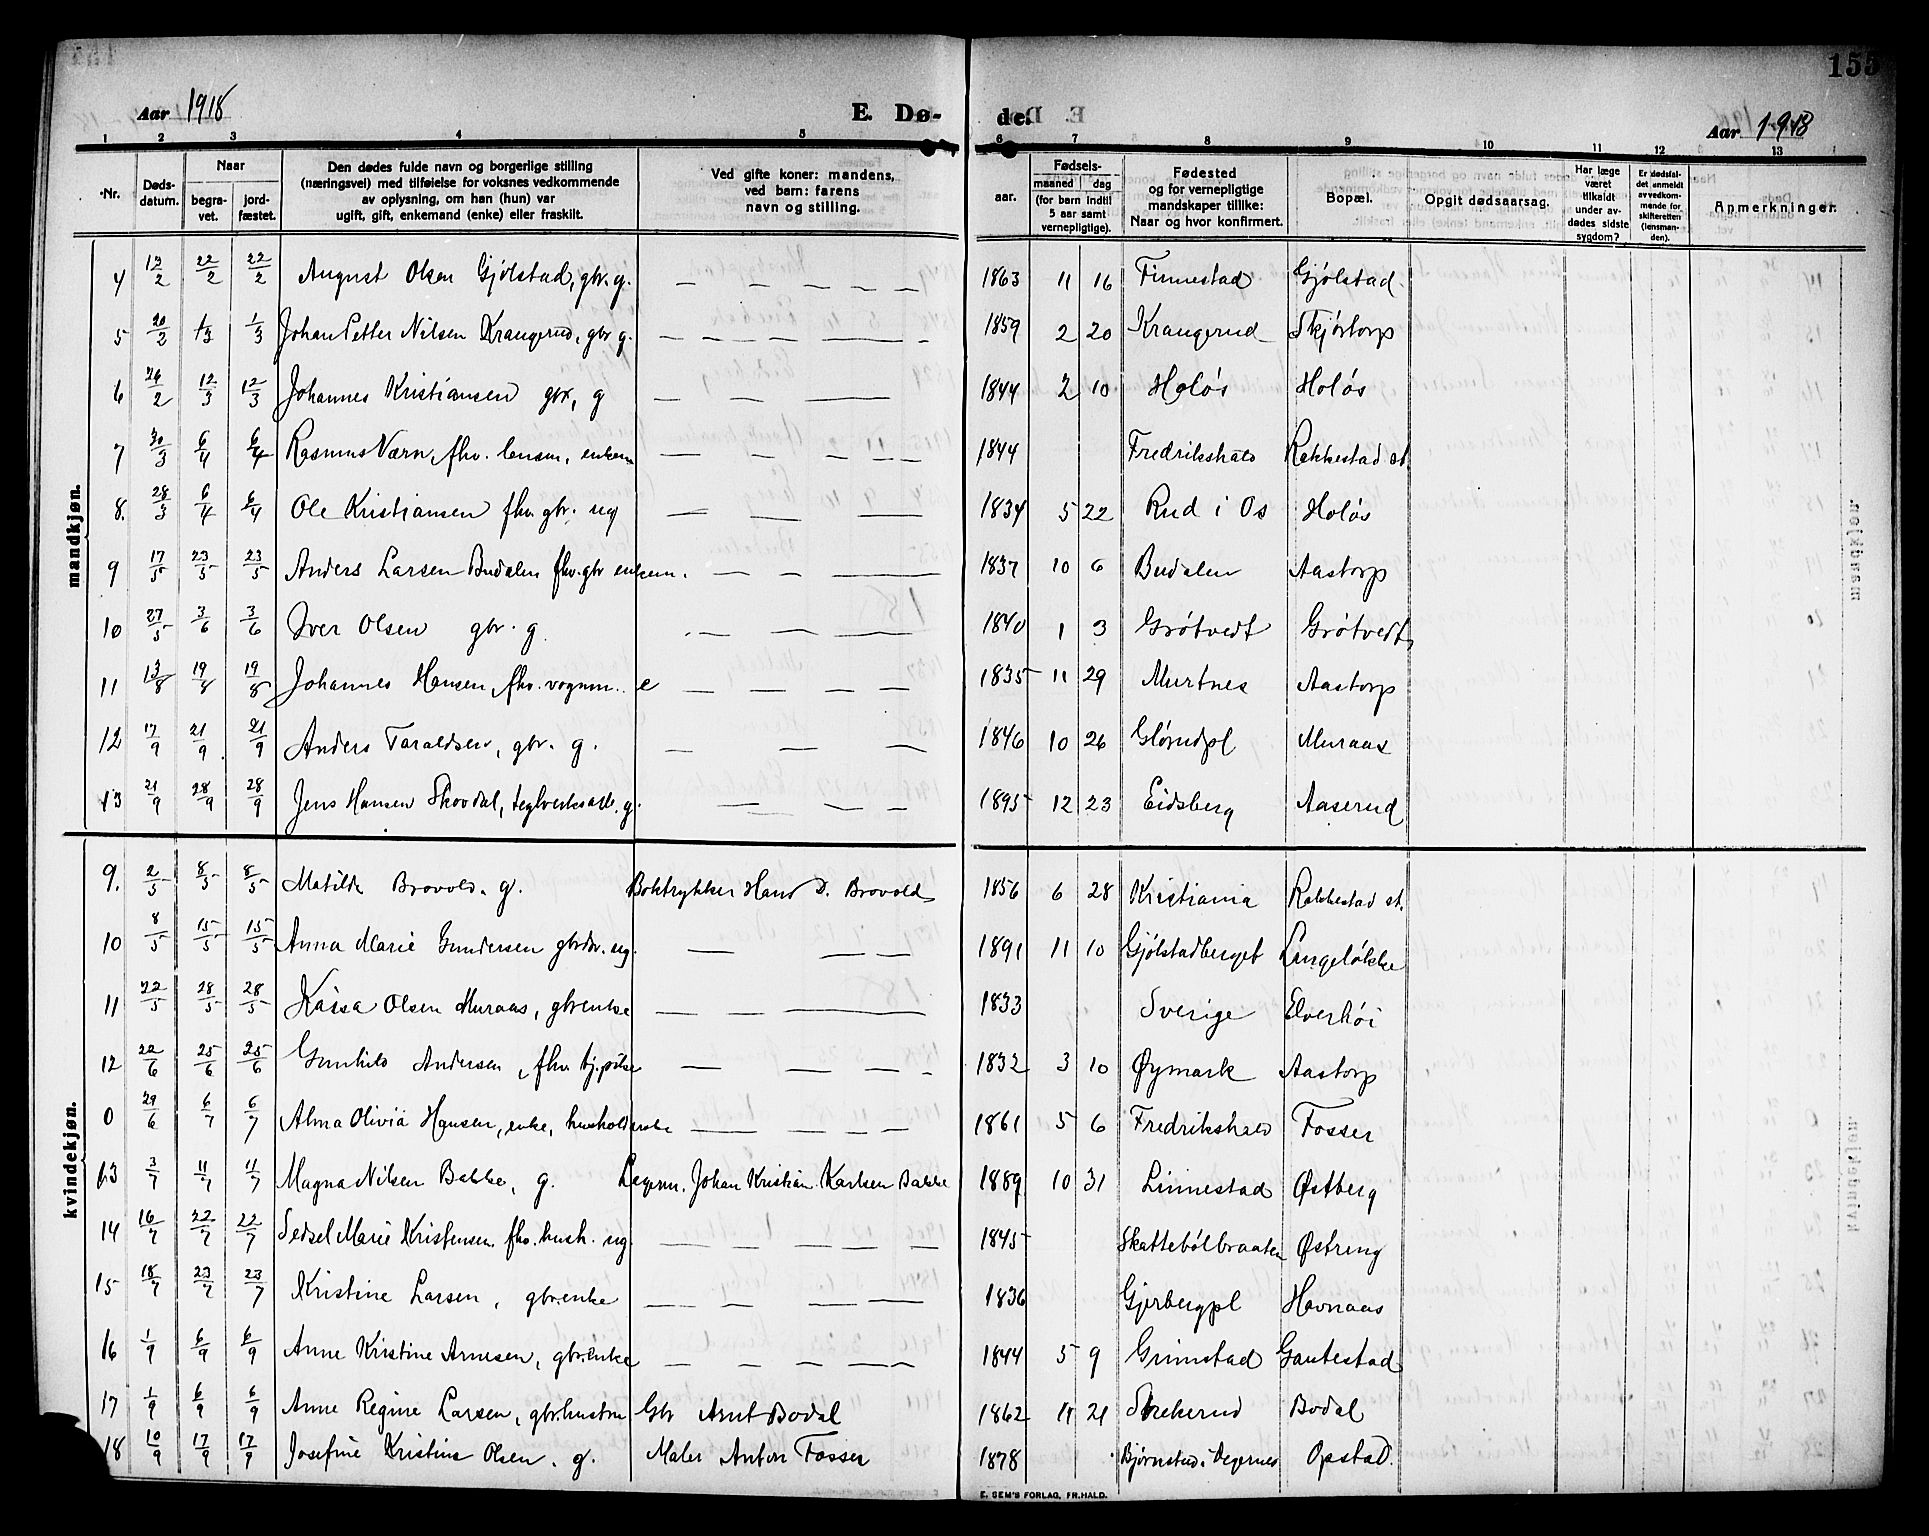 155
Aar 1918
E. Dø-
de.
Aar 1918
1 2 3 4 5 6 7 8 9 10 11 12 13
Nr.
Døds-datum.
Naar
begra-vet.
jord-fæstet.
Den dødes fulde navn og borgerlige stilling
(næringsvei) med tilføielse for voksnes vedkommende
av oplysning, om han (hun) var
ugift, gift, enkemand (enke) eller fraskilt.
Ved gifte koner: mandens,
ved barn: farens
navn og stilling.
aar.
Fødsels-
maaned dag
(for barn indtil
5 aar samt
vernepligtige).
Fødested
og for vernepligtige
mandskaper tillike:
Naar og hvor konfirmert.
Bopæl.
Opgit dødsaarsag.
Har læge
været
tilkaldt
under av-
dødes sidste
sygdom?
Er dødsfal-
det anmeldt
av vedkom-
mende for
skifteretten
(lensman-
den).
Anmerkninger.
mandkjøn.
4 13/2 22/2 22/2 August Olsen Gjølstad, gbr. g. — — — — — 1863 11 16 Finnestad Gjølstad
5 20/2 1/3 1/3 Johan Petter Nilsen Krangerud, gbr g. — — — — — 1859 2 20 Krangerud Skjørtorp
6 26/2 12/3 12/3 Johannes Kristiansen gbr, g — — — 1844 2 10 Holøs Holøs
7 30/3 6/4 6/4 Rasmus Værn, fhv. lensm., enkem — — — — — 1844 Fredrikshald Rakkestad st.
8. 28/3 6/4 6/4 Ole Kristiansen fhv. gbr. ug — — — 1834 5 22 Rud i Os Holøs
9 17/5 23/5 23/5 Anders Larsen Budalen fhv. gbr enkem. — — — 1837 10 6 Budalen Aastorp
10 27/5 3/6 3/6 Iver Olsen gbr. g. — — — 1840 1 3 Grøtvedt Grøtvedt
11 13/8 19/8 19/8 Johannes Hansen, fhv. vognm. e — — — — 1835 11 29 Murtnes Aastorp
12 17/9 21/9 21/9 Anders Taraldsen, gbr. g. — — — 1846 10 26 Glørudpl Muraas
13 21/9 28/9 28/9 Jens Hansen Skovdal, teglverksarb. g. — — — 1895 12 23 Eidsberg Aaserud
kvindekjøn.
9. 2/5 8/5 8/5 Matilde Brovold. g. Boktrykker Hans D. Brovold 1856 6 28 Kristiania Rakkestad st.
10 8/5 15/5 15/5 Anna Marie Gundersen gbrdtr. ug. — — — 1891 11 10 Gjølstadberget Langeløkke
11 22/5 28/5 28/5 Kaisa Olsen Muraas, gbrenke — — — 1833 Sverige Elverhøi
12 22/6 25/6 25/6 Gunhild Andersen, fhv. tj.pike — — — — 1832 3 10 Øymark Aastorp
0 29/6 6/7 6/7 Alma Olivia Hansen, enke, husholderske — — — — 1861 5 6 Fredrikshald Fosser
13 3/7 11/7 11/7 Magna Nilsen Bakke, g. Lagerm. Johan Kristian Karlsen Bakke 1889 10 31 Linnestad Østberg
14 16/7 22/7 22/7 Sedsel Marie Kristensen fhv. hush. ug. — — — — — 1845 Skattebølbraaten Østreng
15 18/7 23/7 23/7 Kristine Larsen, gbr.enke — — — — 1836 Gjerbergpl Hovnaas
16 1/9 6/9 6/9 Anne Kristine Arnesen, gbr.enke — — — — 1844 5 9 Grimstad Gautestad
17 1/9 6/9 6/9 Anne Regine Larsen, gbr.hustru Gbr Arnt Bodal 1862 11 21 Bodal
18 10/9 17/9 17/9 Josefine Kristine Olsen. g. Maler Anton Fosser 1878 Bjørnstad i Degernes Opstad.
E. SEM'S FORLAG, FR.HALD.